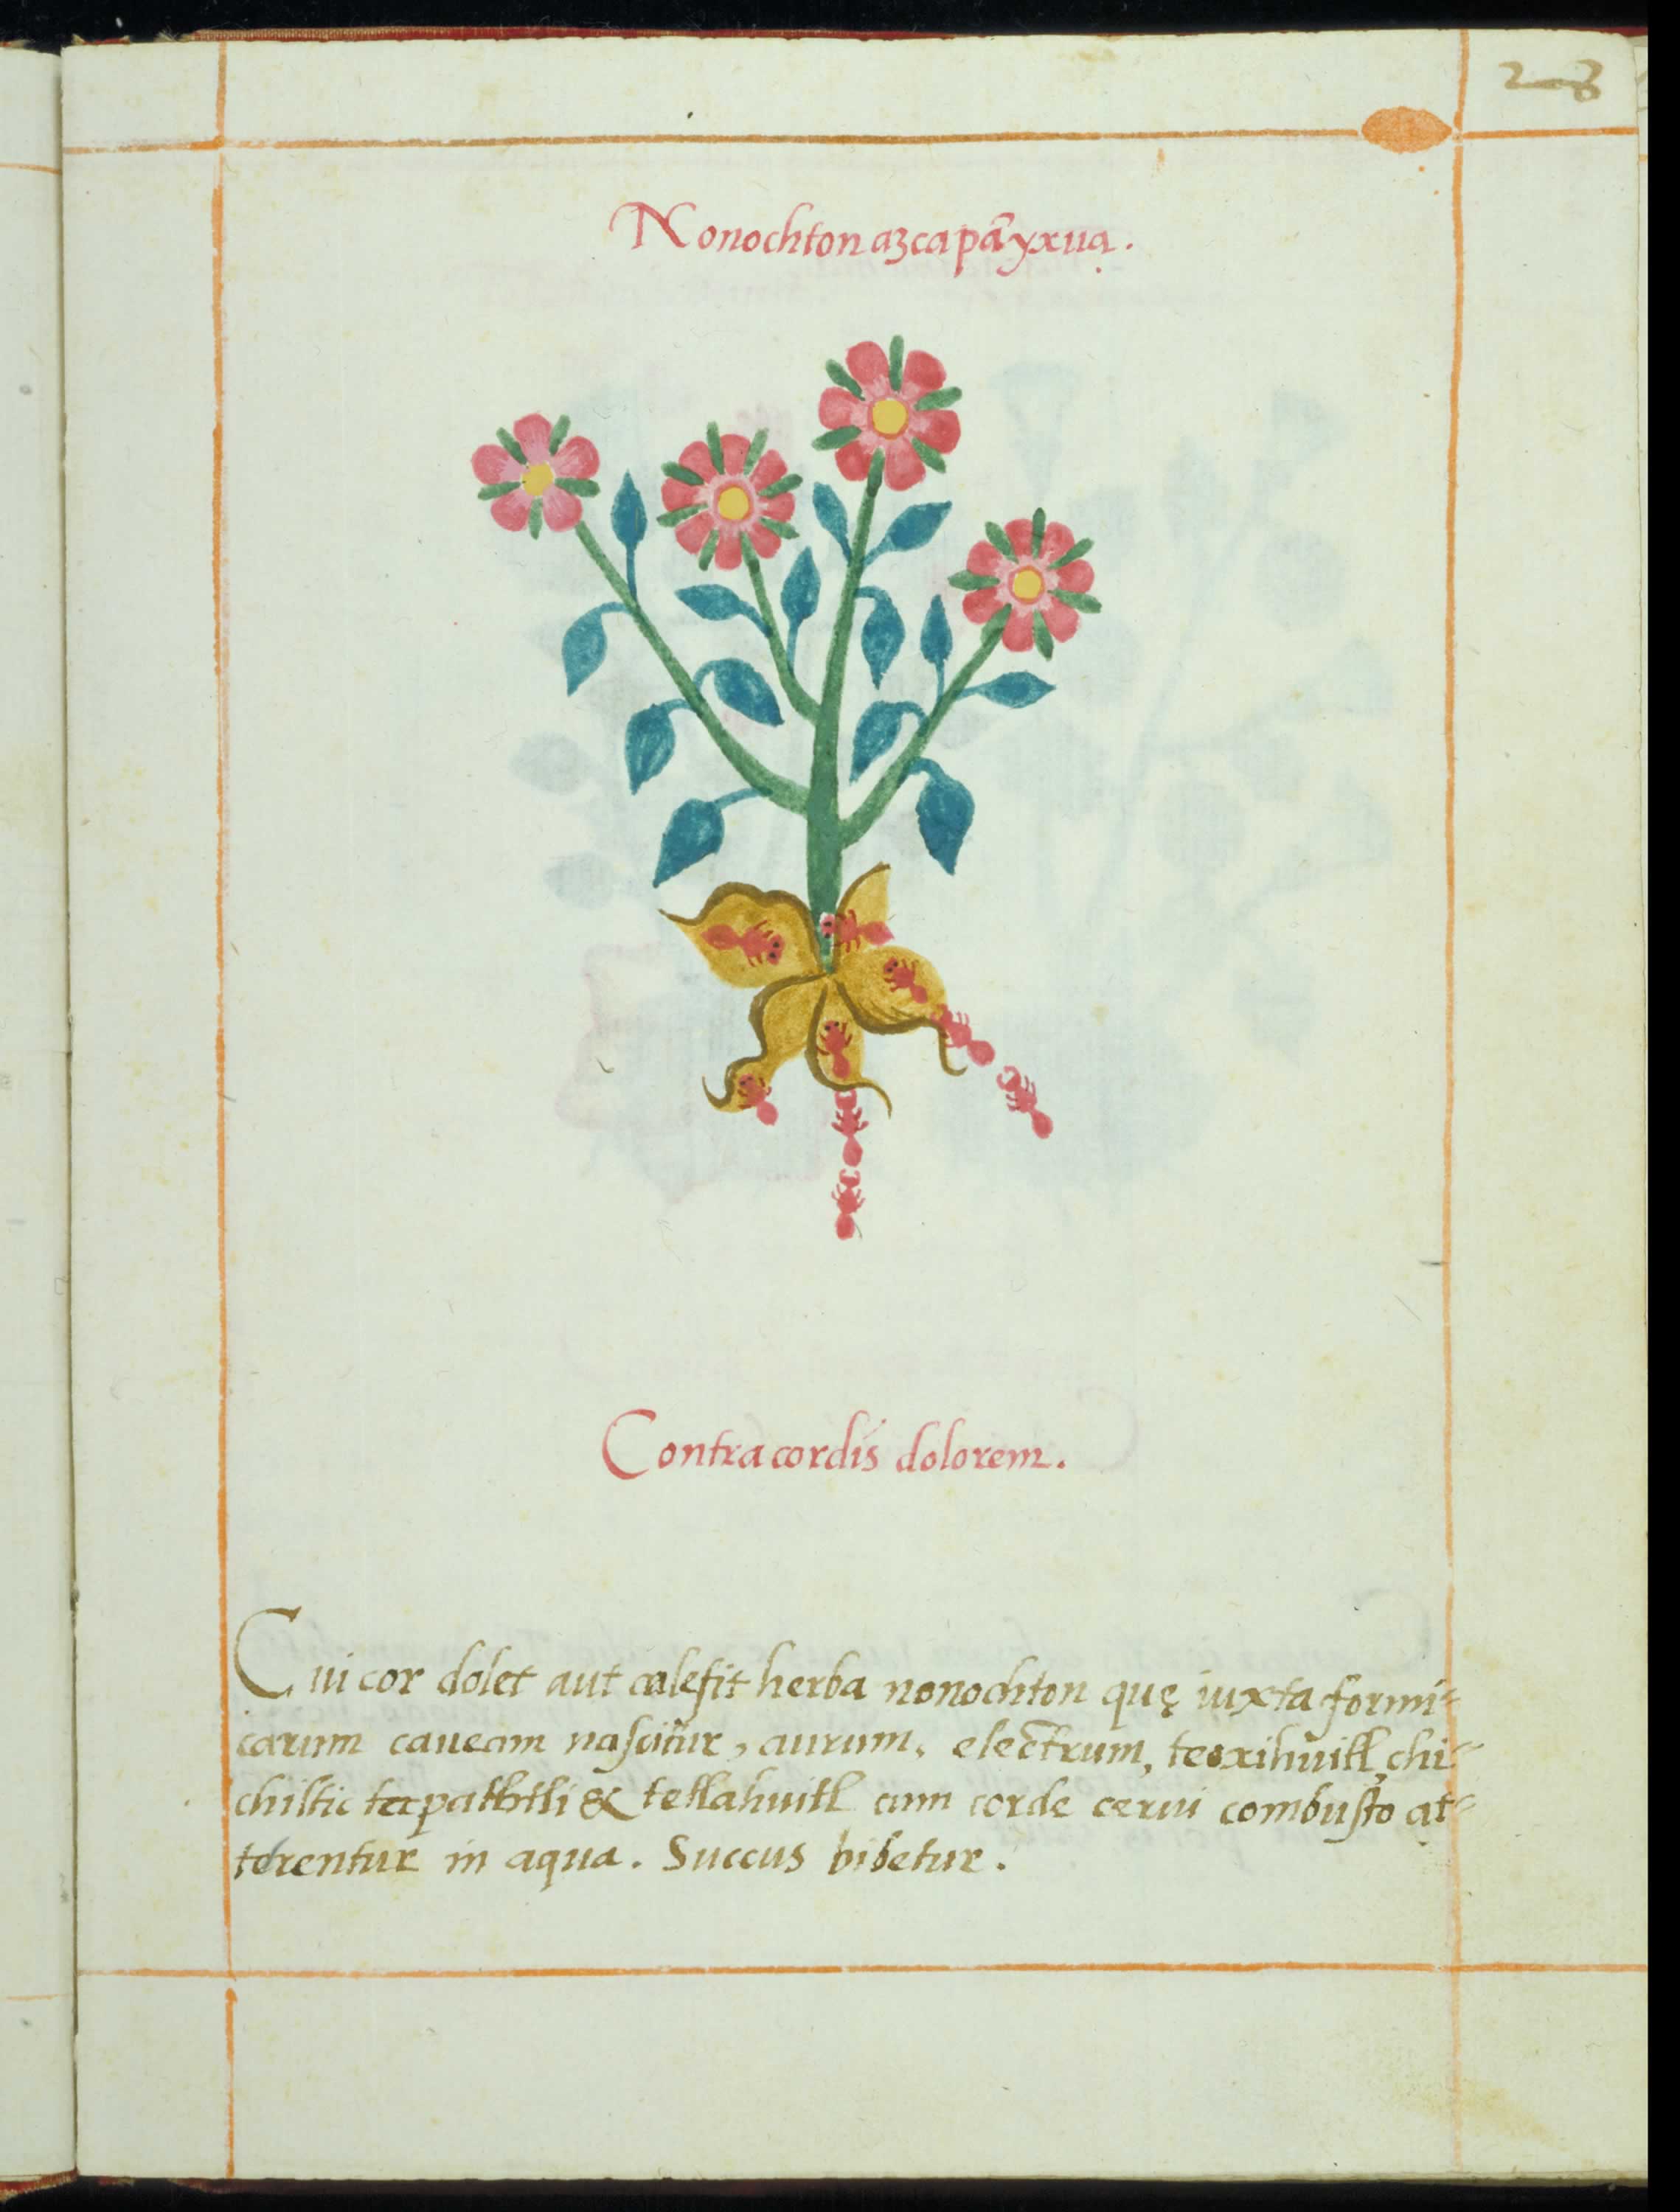 28
Nonochton azcapāyxua.
Contra cordis dolorem.
Cui cor dolet aut calefit herba nonochton quę iuxta formi⸗
carum caueam naſcitur, aurum, electrum, teoxihuitl, chi⸗
chiltic tapathtli & tetlahuitl cum corde cerui combuſto at⸗
terentur in aqua. Succus bibetur.